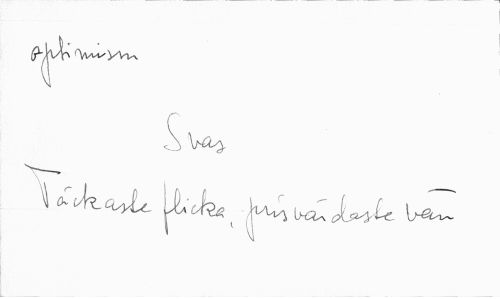 optimism
Svas
Täckaste flicka, prisvärdaste vän